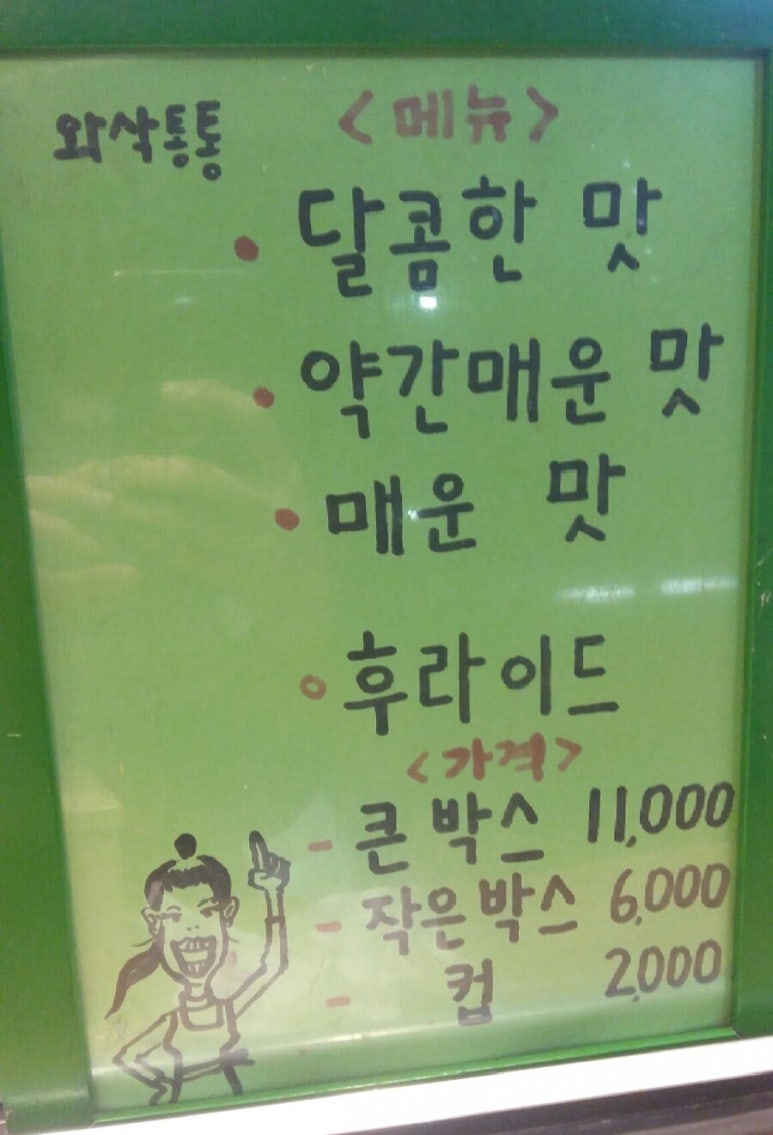 와삭통통
<메뉴>
• 달콤한 맛
• 약간매운 맛
• 매운 맛
○ 후라이드
<가격>
- 큰 박스 11,000
- 작은박스 6,000
- 컵 2,000